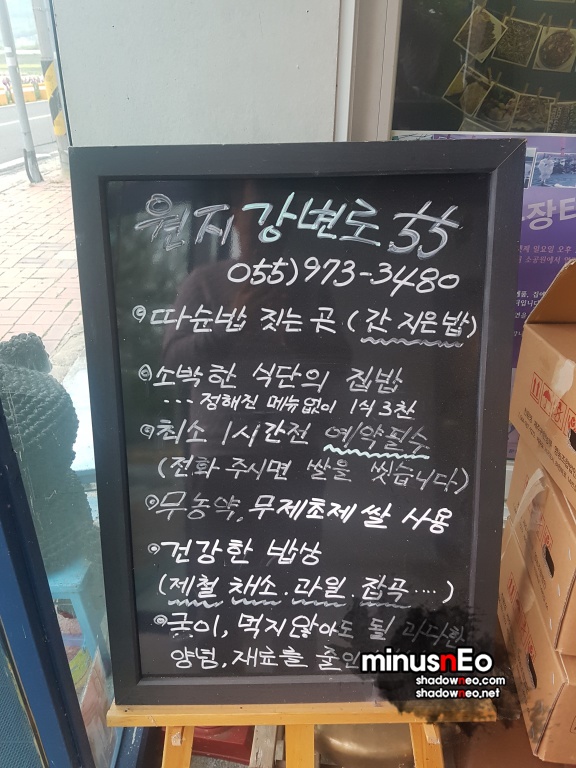 원지강변로 55
055)973-3480
◎따순밥 짓는 곳 (갓 지은밥)
◎소박한 식단의 집밥
··· 정해진 메뉴없이 1식3찬
◎최소 1시간전 예약필수
(전화 주시면 쌀을 씻습니다)
◎무농약, 무제초제 쌀 사용
◎건강한 밥상
(제철 채소. 과일. 잡곡 ····)
◎굳이, 먹지않아도 될 과다한
양념, 재료를 줄인
minusnEo
shadowneo.com
shadowneo.net
장터